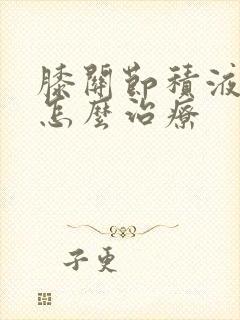 膝關節積液
怎麼治療
子更